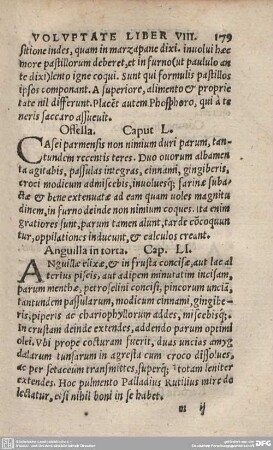 VOLVPTATE LIBER VIII. 179
sitione indes, quam in marzapane dixi. inuolui hæc
more pastillorum deberet, et in furno (ut paululo an
te dixi) lento igne coqui. Sunt qui formulis pastillos
ipsos componant. A superiore, alimento & proprie
tate nil differunt. Placēt autem Phosphoro, qui à te
neris saccaro assueuit.
Offella. Caput L.
CAsei parmensis non nimium duri parum, tan-
tundem recentis teres. Duo ouorum albamen
ta agitabis, passulas integras, cinnami, gingiberis,
croci modicum admiscebis, inuoluesq; farinæ subac
tæ & bene extenuatæ ad eam quam uoles magnitu
dinem, in furno deinde non nimium coques. ita enim
gratiores sunt, parum tamen alunt, tarde cōcoquun
tur, oppilationes inducunt, & calculos creant.
Anguilla in torta. Cap. LI.
ANguillæ elixæ, & in frusta concisæ, aut lac al
terius piscis, aut adipem minutatim incisam,
parum menthæ, petroselini concisi, pincorum unciā,
tantundem passularum, modicum cinnami, gingibe-
ris, piperis ac chariophyllorum addes, miscebisq;.
In crustam deinde extendes, addendo parum optimi
olei. Vbi prope cocturam fuerit, duas uncias amyg
dalarum tunsarum in agresta cum croco dissolues,
ac per setaceum transmittes, superq; totam leniter
extendes. Hoc pulmento Palladius Rutilius mire do
lectatur, etsi nihil boni in se habet.
m ij